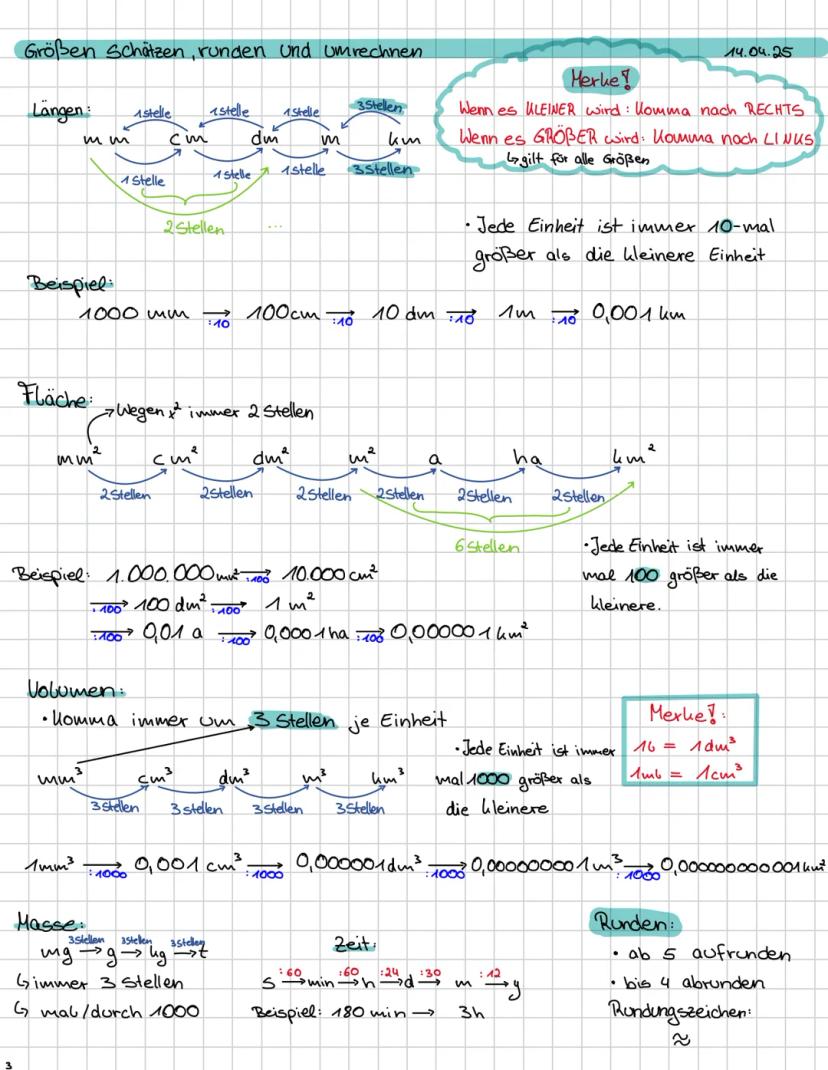 Größen schätzen, runden und umrechnen 14.04.25
Merke!
Wenn es KLEINER wird: Komma nach RECHTS
Wenn es GRÖßER wird: Komma nach LINKS
↳ gilt für alle Größen
Längen:
1 Stelle 1 Stelle 1 Stelle 3 Stellen
mm cm dm m km
1 Stelle 1 Stelle 1 Stelle 3 Stellen
2 Stellen ...
• Jede Einheit ist immer 10-mal
größer als die kleinere Einheit
Beispiel:
1000 mm →:10 100cm →:10 10 dm →:10 1m →:10 0,001 km
Fläche:
→ Wegen x² immer 2 Stellen
mm² cm² dm² m² a ha km²
2 Stellen 2 Stellen 2 Stellen 2 Stellen 2 Stellen 2 Stellen
6 Stellen
• Jede Einheit ist immer
mal 100 größer als die
kleinere.
Beispiel: 1.000.000 mm² →:100 10.000 cm²
→:100 100 dm² →:100 1 m²
→:100 0,01 a →:100 0,0001 ha →:100 0,000001 km²
Volumen:
• Komma immer um 3 Stellen je Einheit
mm³ cm³ dm³ m³ km³
3 Stellen 3 Stellen 3 Stellen 3 Stellen
• Jede Einheit ist immer
mal 1000 größer als
die kleinere
Merke!:
1l = 1dm³
1ml = 1cm³
1mm³ →:1000 0,001 cm³ →:1000 0,000001dm³ →:1000 0,000000001m³ →:1000 0,000000000001km³
Masse:
3 Stellen 3 Stellen 3 Stellen
mg → g → kg → t
↳ immer 3 Stellen
↳ mal/durch 1000
Zeit:
:60 :60 :24 :30 :12
s → min → h → d → m → y
Beispiel: 180 min → 3h
Runden:
• ab 5 aufrunden
• bis 4 abrunden
Rundungszeichen:
≈
3